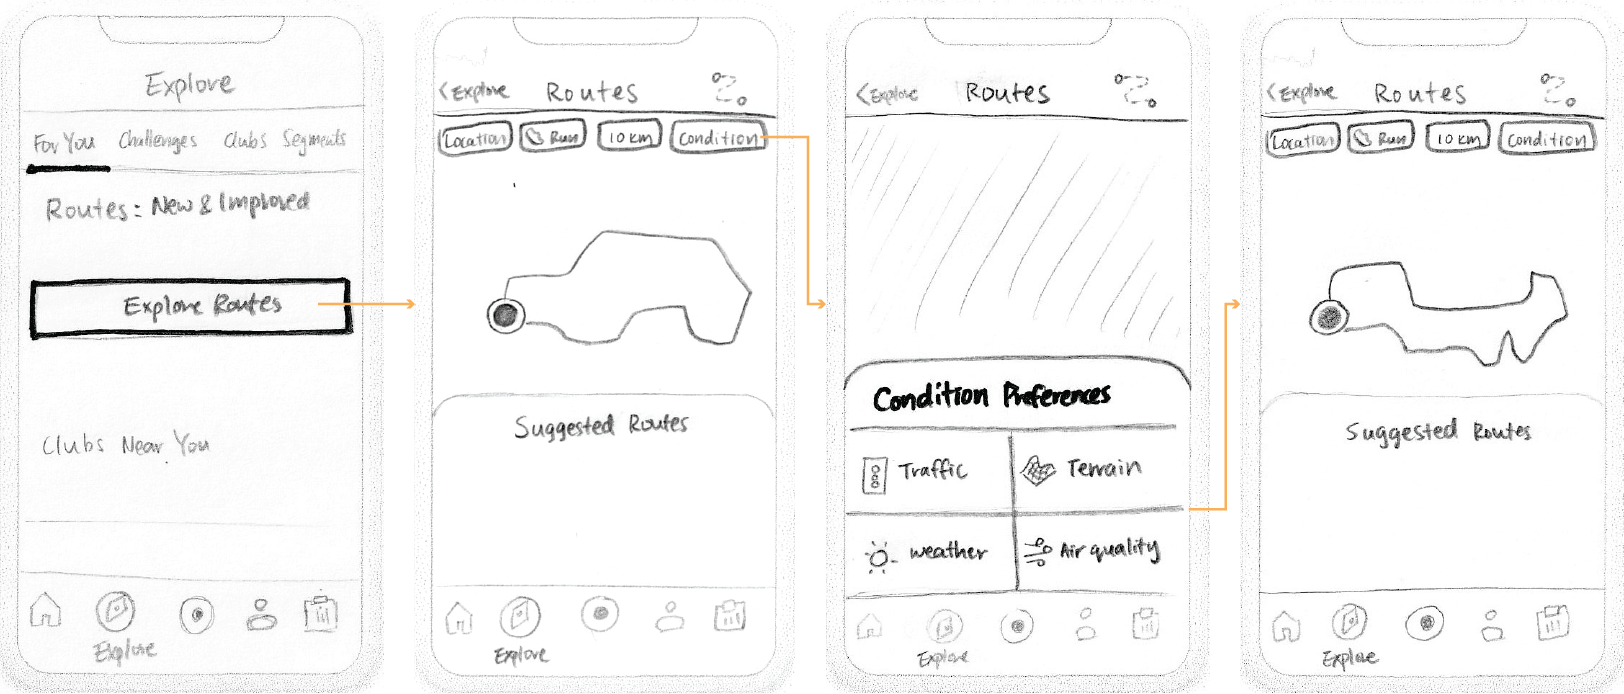 Explore
For You Challenges Clubs Segments
Routes: New & Improved
Explore Routes
Clubs Near You
Explore
< Explore Routes
Location Run 10 km Condition
Suggested Routes
Explore
< Explore Routes
Condition Preferences
Traffic Terrain
weather Air quality
Explore
< Explore Routes
Location Run 10 km Condition
Suggested Routes
Explore